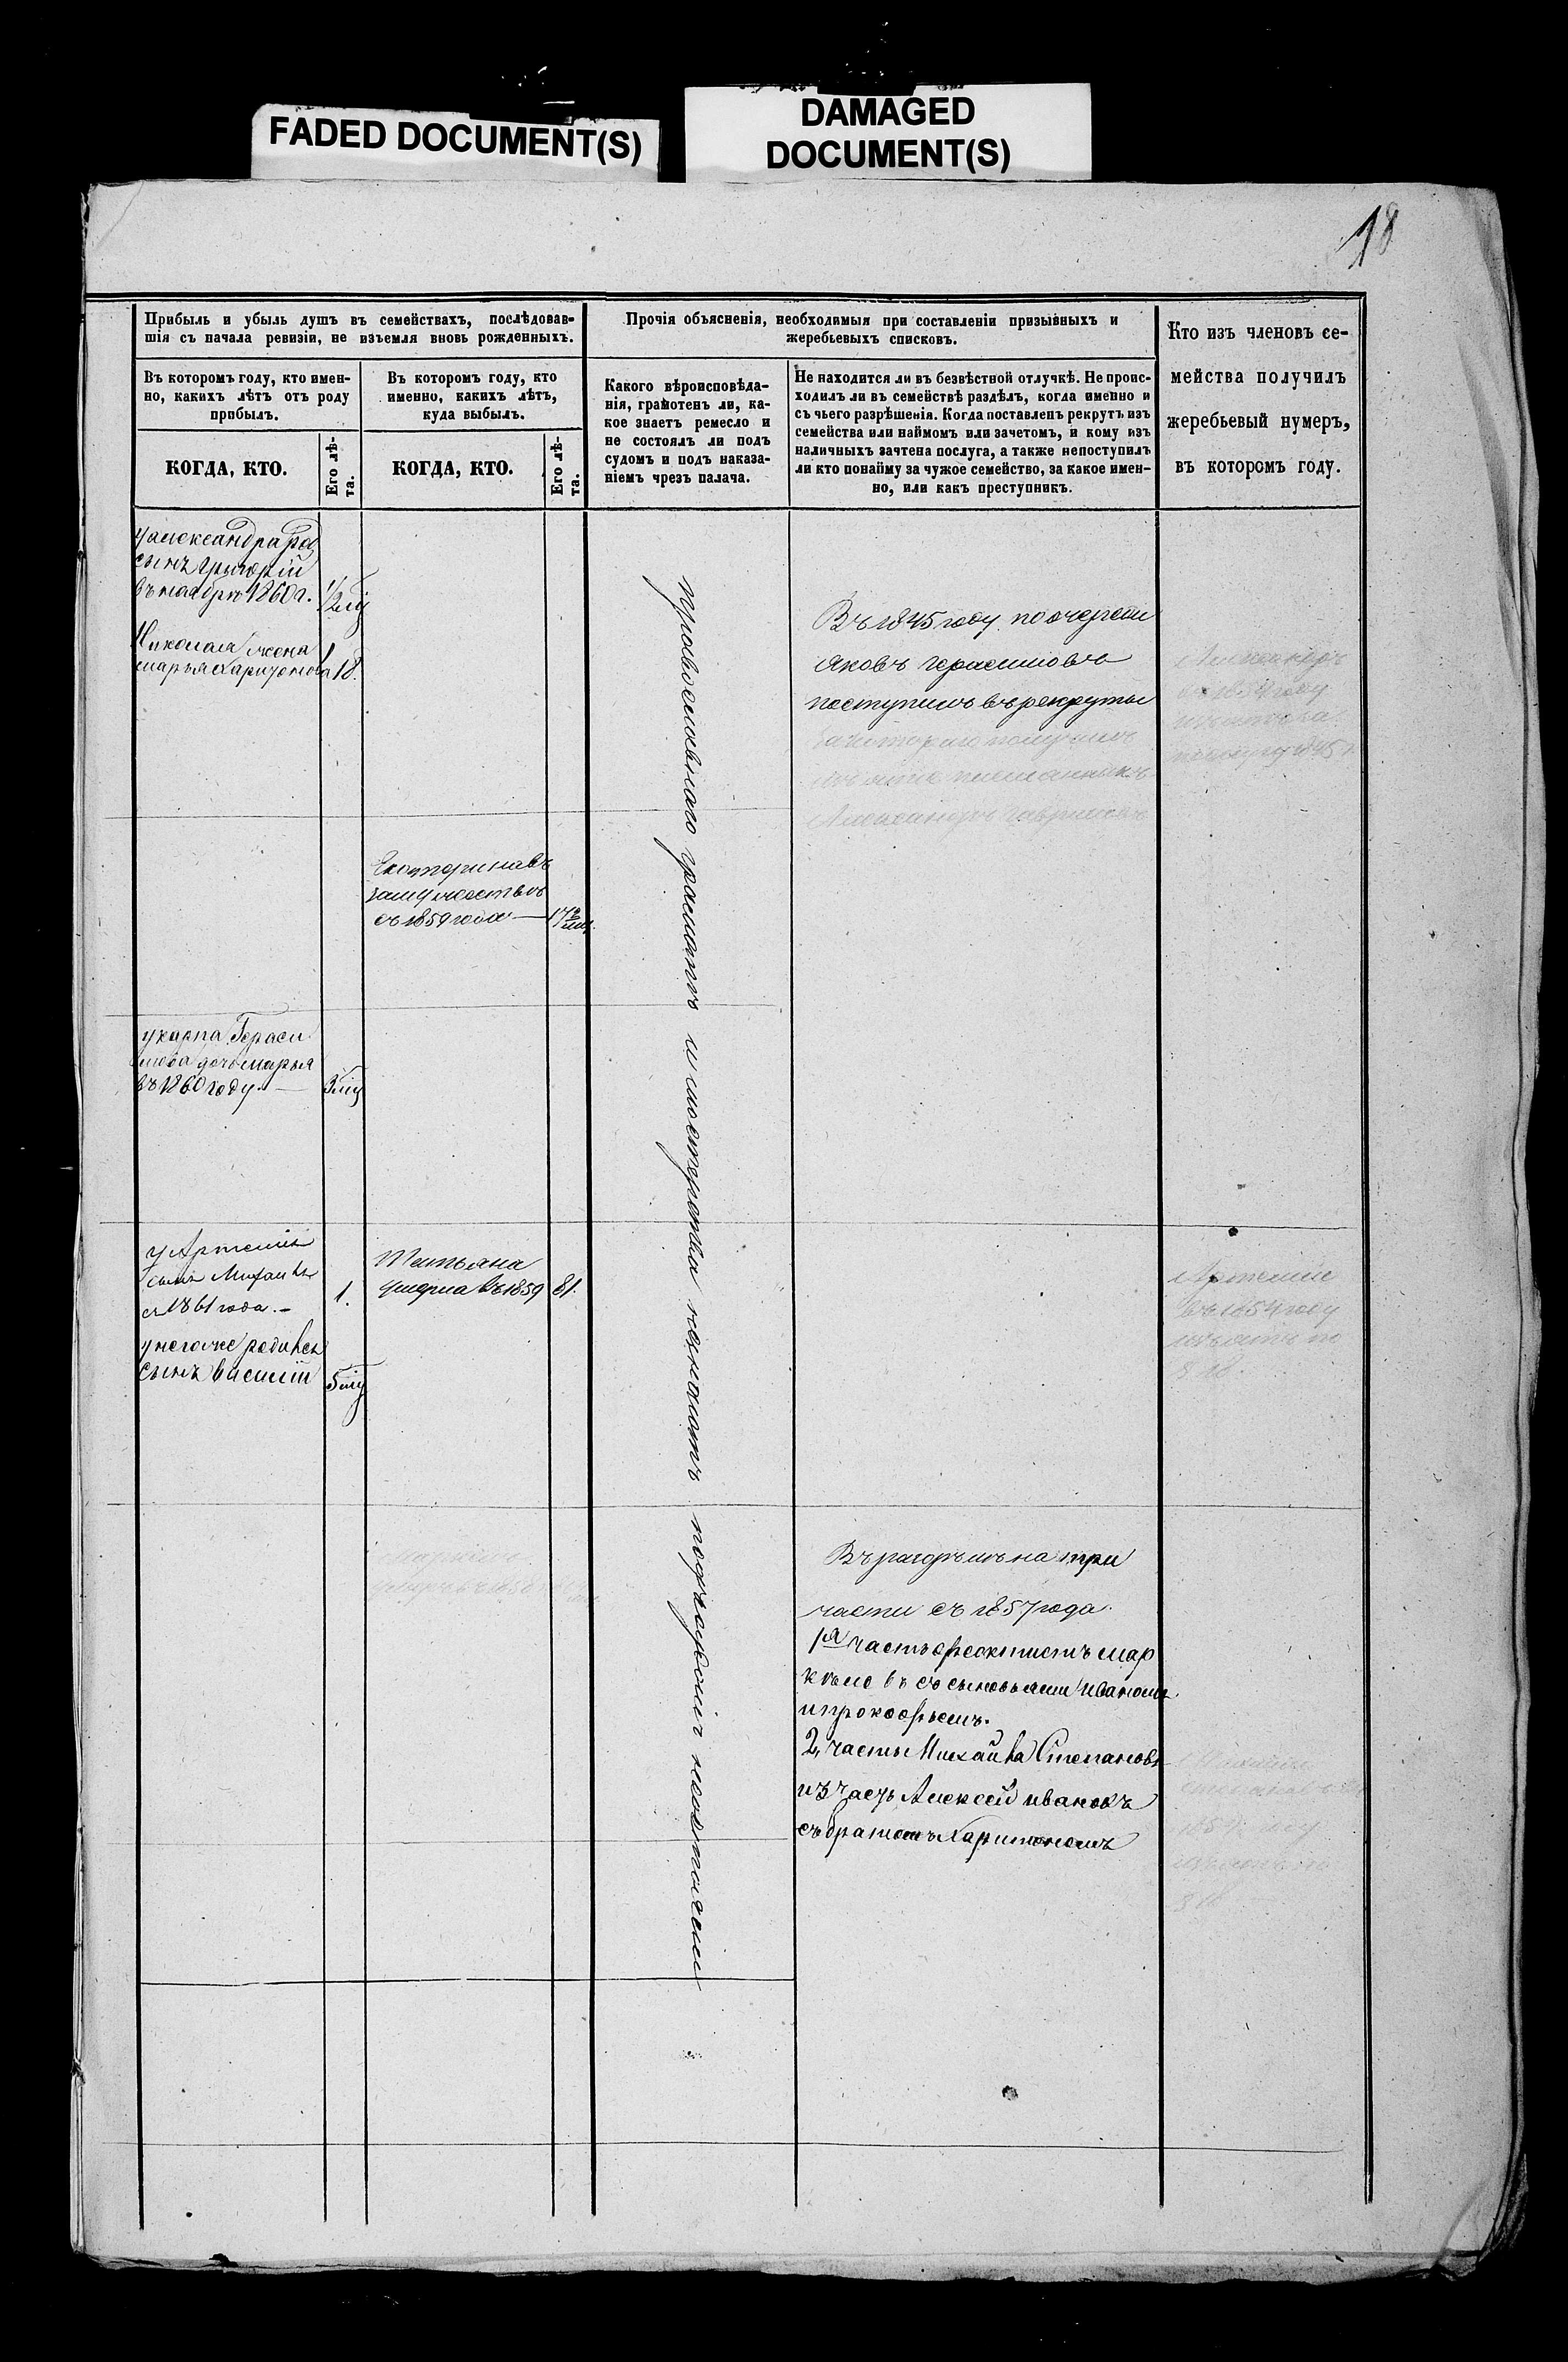 FADED DOCUMENT(S)
DAMAGED
DOCUMENT(S)
18
Прибыль и убыль душъ въ семействахъ, послѣдовав-
шія съ начала ревизіи, не изъемля вновь рожденныхъ.
Въ которомъ году, кто имен-
но, какихъ лѣтъ отъ роду
прибылъ.
КОГДА, КТО.
Его лѣ-
та.
Въ которомъ году, кто
именно, какихъ лѣтъ,
куда выбылъ.
КОГДА, КТО.
Его лѣ-
та.
Прочія объясненія, необходимыя при составленіи призывныхъ и
жеребьевыхъ списковъ.
Какого вѣроисповѣда-
нія, грамотенъ ли, ка-
кое знаетъ ремесло и
не состоялъ ли подъ
судомъ и подъ наказа-
ніемъ чрезъ палача.
Не находится ли въ безвѣстной отлучкѣ. Не проис-
ходилъ ли въ семействѣ раздѣлъ, когда именно и
съ чьего разрѣшенія. Когда поставленъ рекрутъ изъ
семейства или наймомъ или зачетомъ, и кому изъ
наличныхъ зачтена послуга, а также непоступилъ
ли кто понайму за чужое семейство, за какое имен-
но, или какъ преступникъ.
Кто изъ членовъ се-
мейства получилъ
жеребьевый нумеръ,
въ которомъ году.
у александра
сынъ григорій
въ ноябрѣ 1860 г. 1/2
Николая жена
марья Харитонова 18.
Въ 1845 году по очереди
яковъ герасимовъ
поступилъ въ рекруты
за которого получилъ
племянникъ
Александръ
Александръ
въ 1854 году
1845 г
Екатерина въ
замужествѣ
съ 1859 года — 17
у карпа Гераси
мова дочь марья
въ 1860 году. — 3
у Артемія
сынъ Михаилъ
съ 1861 года. — 1.
у негоже родился
сынъ василій 5
Татьяна
умерла въ 1859 81.
Артемій
въ 1854 году
православнаго грамотѣ и мастерства незнаютъ подъ
Въ раздѣлѣ на три
части съ 1857 года.
1я часть феоктистъ мар
кѣловъ съ сыновьями иваномъ
и прокофьемъ.
2, часть Михаила Степановъ
и 3 часть Алексѣй ивановъ
съ братомъ Харитономъ